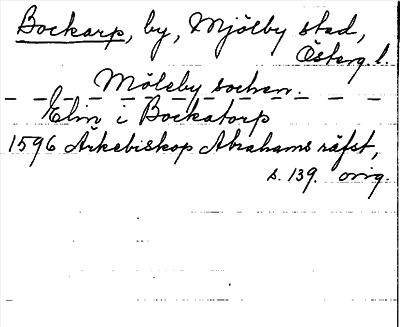 Bockarp, by, Mjölby stad,
Österg. l.
Möleby socken.
Elin i Bockatorp
1596 Ärkebiskop Abrahams räfst,
s. 139. orig.